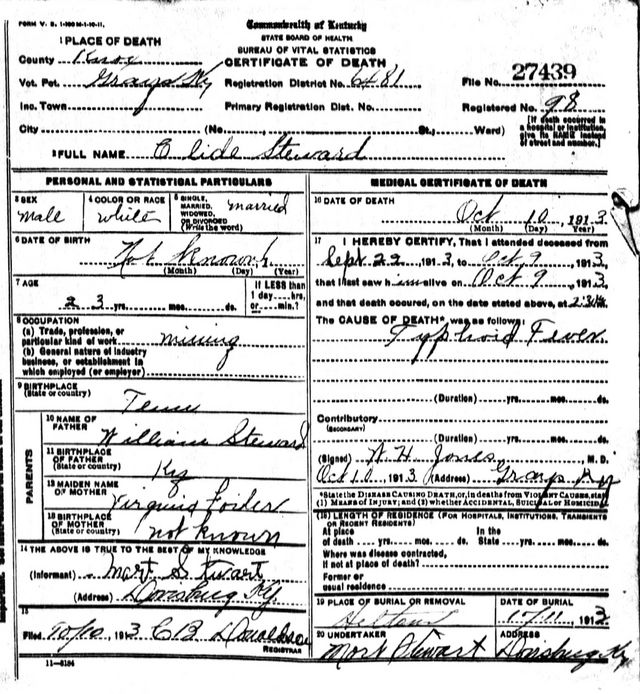 FORM V. S. 1-100 M-1-10-11.
Commonwealth of Kentucky
STATE BOARD OF HEALTH
BUREAU OF VITAL STATISTICS
CERTIFICATE OF DEATH
1 PLACE OF DEATH
County Knox
Vot. Pct. Grays Ky Registration District No. 6481 File No. 27439
Inc. Town Primary Registration Dist. No. Registered No. 98
City (No. , St.; Ward)
[If death occurred in a hospital or institution, give its NAME instead of street and number.]
2 FULL NAME Clide Steward
PERSONAL AND STATISTICAL PARTICULARS
3 SEX male
4 COLOR OR RACE white
5 SINGLE, MARRIED, WIDOWED, OR DIVORCED (Write the word) married
6 DATE OF BIRTH Not Known
(Month) (Day) (Year)
7 AGE 23 yrs. mos. ds.
If LESS than 1 day hrs. or min.?
8 OCCUPATION
(a) Trade, profession, or particular kind of work mining
(b) General nature of industry business, or establishment in which employed (or employer)
9 BIRTHPLACE (State or country) Tenn
PARENTS
10 NAME OF FATHER William Steward
11 BIRTHPLACE OF FATHER (State or country) Ky
12 MAIDEN NAME OF MOTHER
13 BIRTHPLACE OF MOTHER (State or country) not known
14 THE ABOVE IS TRUE TO THE BEST OF MY KNOWLEDGE
(Informant) Mort Stwart
(Address) Ky.
15
Filed 10/10 1913 C B
REGISTRAR
11-6184
MEDICAL CERTIFICATE OF DEATH
16 DATE OF DEATH
Oct 10 1913
(Month) (Day) (Year)
17 I HEREBY CERTIFY, That I attended deceased from
Sept 22 1913, to Oct 9, 1913
that I last saw him alive on Oct 9 1913
and that death occured, on the date stated above, at
The CAUSE OF DEATH* was as follows:
Typhoid Fever
(Duration) yrs. mos. ds.
Contributory (SECONDARY)
(Duration) yrs. mos. ds.
(Signed) Jones, M. D.
Oct 10 1913 (Address) Grays Ky
*State the DISEASE CAUSING DEATH, or, in deaths from VIOLENT CAUSES, state
(1) MEANS OF INJURY; and (2) whether ACCIDENTAL, SUICIDAL or HOMICIDAL
(18) LENGTH OF RESIDENCE (FOR HOSPITALS, INSTITUTIONS, TRANSIENTS OR RECENT RESIDENTS)
At place of death yrs. mos. ds. In the State yrs. mos. ds.
Where was disease contracted, if not at place of death?
Former or usual residence
19 PLACE OF BURIAL OR REMOVAL
DATE OF BURIAL 10/11 1913
20 UNDERTAKER Mort Stwart
ADDRESS Ky